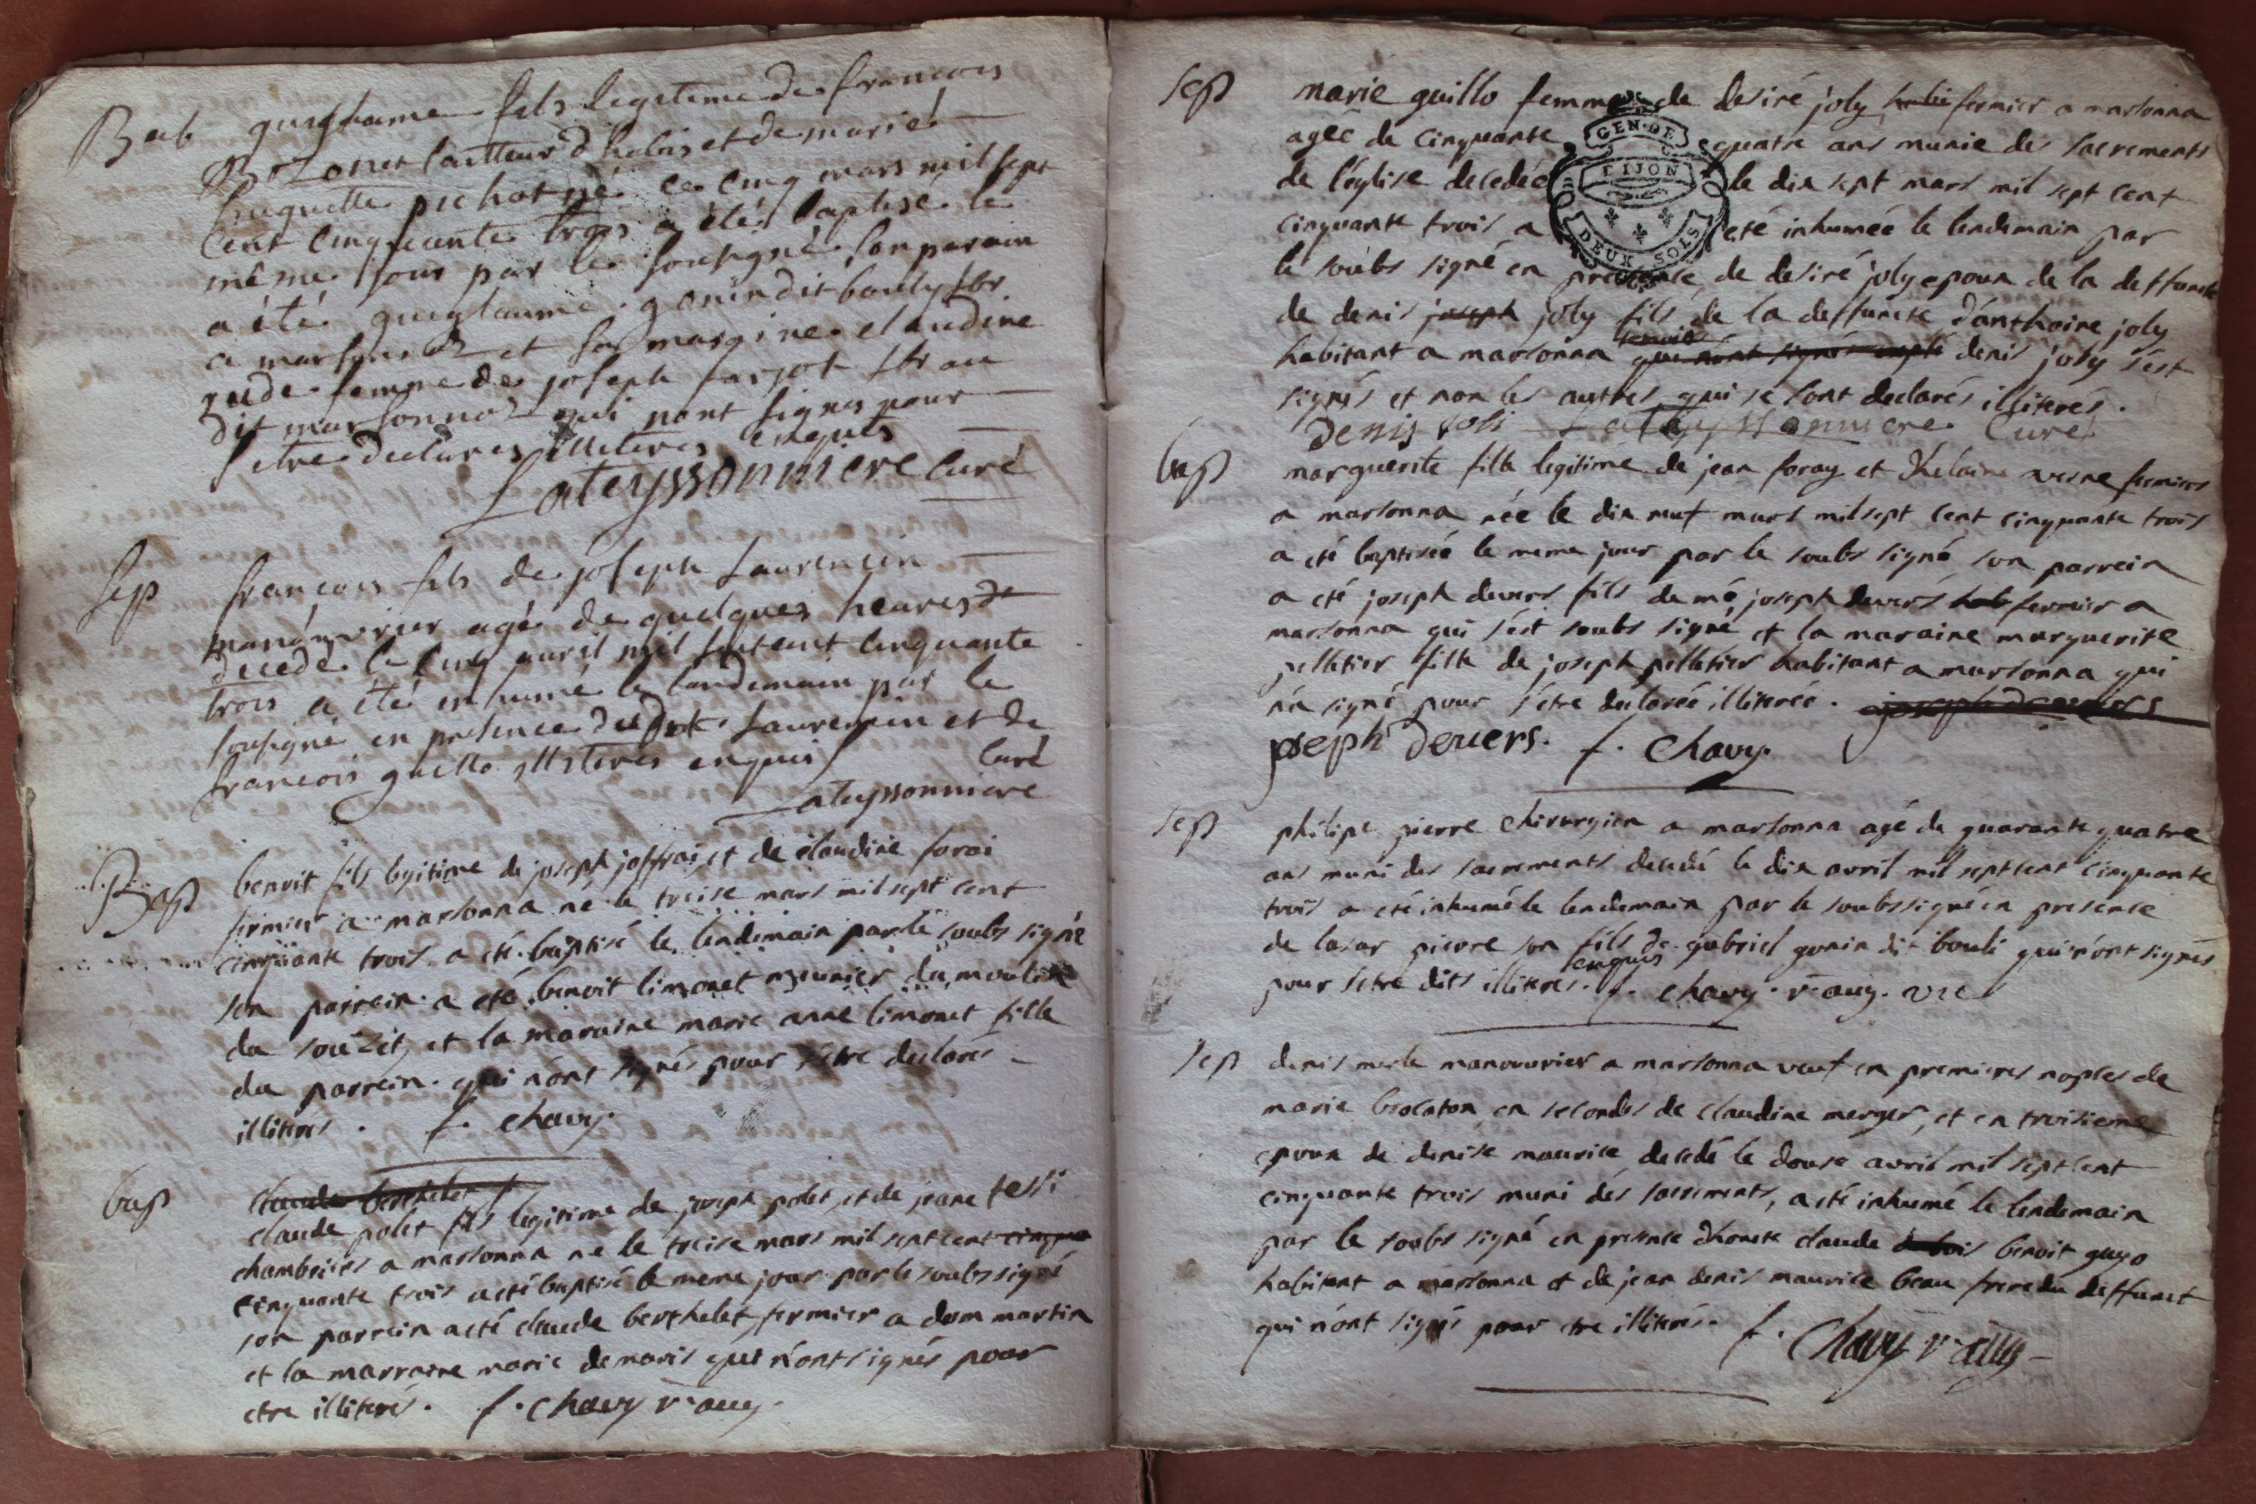 Bab guiglaume fils legiteme de francois
tailleur d'habis et de marie
huguette pichot né le cinq mars mil sept
cent cinquante trois a été baptisé le
même jour par le sousigné son parain
a été guiglaume gonin dit bouly
a marsonna et sa marine claudine
femme de joseph farjot
dit marsonna qui nont signes pour
setre declares illiteres enquis
Lateyssonniere curé
sep francois fils de joseph Laurencin
manouvrier agé de quelques heures
decede le cinq avril mil septcent cinquante
trois a été inhumé le landemain par le
sousigné en presence dudit Laurencin et de
francois guillo illiteres enquis curé
Lateyssonniere
Bap benoit fils legitime de joseph joffrai, et de claudine forai
fermier a marsonna né le treise mars mil sept cent
cinquante trois a été baptisé le lendemain par le soubs signé
son parrein a été benoit limonet meunier du moulin
du souzit, et la maraine marie anne limonet fille
du parrein. qui n'ont signés pour s'etre declarés
illiteres. f. chavy.
bap claude berthelet
claude polet fils legitime de joseph polet, et de jeane tessi
chambriers a marsonna né le treise mars mil sept cent cinqua
cinquante trois a été baptisé le meme jour par le soubs signé
son parrein a été claude berthelet, fermier a dom martin
et la marraine marie demaris qui n'ont signés pour
etre illiterés. f. chavy v. aug.
sep marie guillo femme de desiré joly fermier a marsonna
ageé de cinquante quatre ans munie des sacrements
GEN. DE DIJON
DEUX SOLS
de l'église decedée le dix sept mars mil sept cent
cinquante trois a eté inhumée le lendemain par
le soubs signé en presence de desiré joly epoux de la deffuncte
de denis joseph joly fils de la deffuncte d'anthoine joly
temoins
habitant a marsonna qui n'ont signés denis joly s'est
signés et non les autres qui se sont declarés illiterés.
denis joli Lateyssonniere Curé
bap marguerite fille legitime de jean foray et d'helaine verne fermiers
a marsonna née le dix neuf mars mil sept cent cinquante trois
a eté baptisée le meme jour par le soubs signé, son parrein
a eté joseph devers fils de mé joseph devers fermier a
marsonna qui s'est soubs signé, et la maraine marguerite
pelletier fille de joseph pelletier habitant a marsonna qui
n'a signé pour s'etre declareé illitereé. joseph devers
joseph devers. f. chavy.
sep philipe pierre chirurgien a marsonna agé de quarante quatre
ans muni des sacrements decedé le dix avril mil sept cent cinquante
trois a eté inhumé le lendemain par le soubs signé en presence
de lasar pierre son fils de gabriel gonin dit bouli qui n'ont signés
enquis
pour setre dits illiteres. f. chavy. v. aug. vic
sep denis merle manouvrier a marsonna veuf en premieres nopces de
marie brolaton en secondes de claudine merger, et en troisieme
epoux de denise maurice, decedé le douse avril mil sept cent
cinquante trois muni des sacrements, a eté inhumé le lendemain
par le soubs signé en presence d'honete claude benoit guyo
habitant a marsonna et de jean denis maurice beau frere du deffunct
qui n'ont signés pour etre illiterés. f. Chavy v. aug